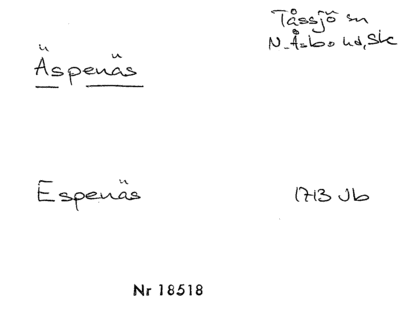 Tåssjö sn
N. Åsbo hd, Sk
Äspenäs
Espenäs 1713 Jb
Nr 18518